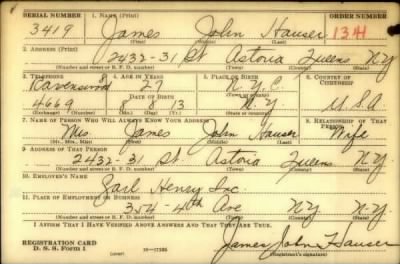 SERIAL NUMBER 1. NAME (Print) ORDER NUMBER
3419 James John Hauser 13H
(First) (Middle) (Last)
2. ADDRESS (Print)
2432-31 St. Astoria Queens N.Y.
(Number and street or R. F. D. number) (Town) (County) (State)
3. TELEPHONE 4. AGE IN YEARS 5. PLACE OF BIRTH 6. COUNTRY OF CITIZENSHIP
Ravenswood 8 27 N.Y.C.
DATE OF BIRTH (Town or county)
4669 8 8 13 N.Y. U.S.A.
(Exchange) (Number) (Mo.) (Day) (Yr.) (State or country)
7. NAME OF PERSON WHO WILL ALWAYS KNOW YOUR ADDRESS 8. RELATIONSHIP OF THAT PERSON
Mrs. James John Hauser Wife
(Mr., Mrs., Miss) (First) (Middle) (Last)
9. ADDRESS OF THAT PERSON
2432-31 St. Astoria Queens N.Y.
(Number and street or R. F. D. number) (Town) (County) (State)
10. EMPLOYER'S NAME
Earl Henry Inc.
11. PLACE OF EMPLOYMENT OR BUSINESS
354-4th Ave N.Y. N.Y.
(Number and street or R. F. D. number) (Town) (County) (State)
I AFFIRM THAT I HAVE VERIFIED ABOVE ANSWERS AND THAT THEY ARE TRUE.
REGISTRATION CARD James John Hauser
D. S. S. Form 1 (over) 16—17105 (Registrant's signature)